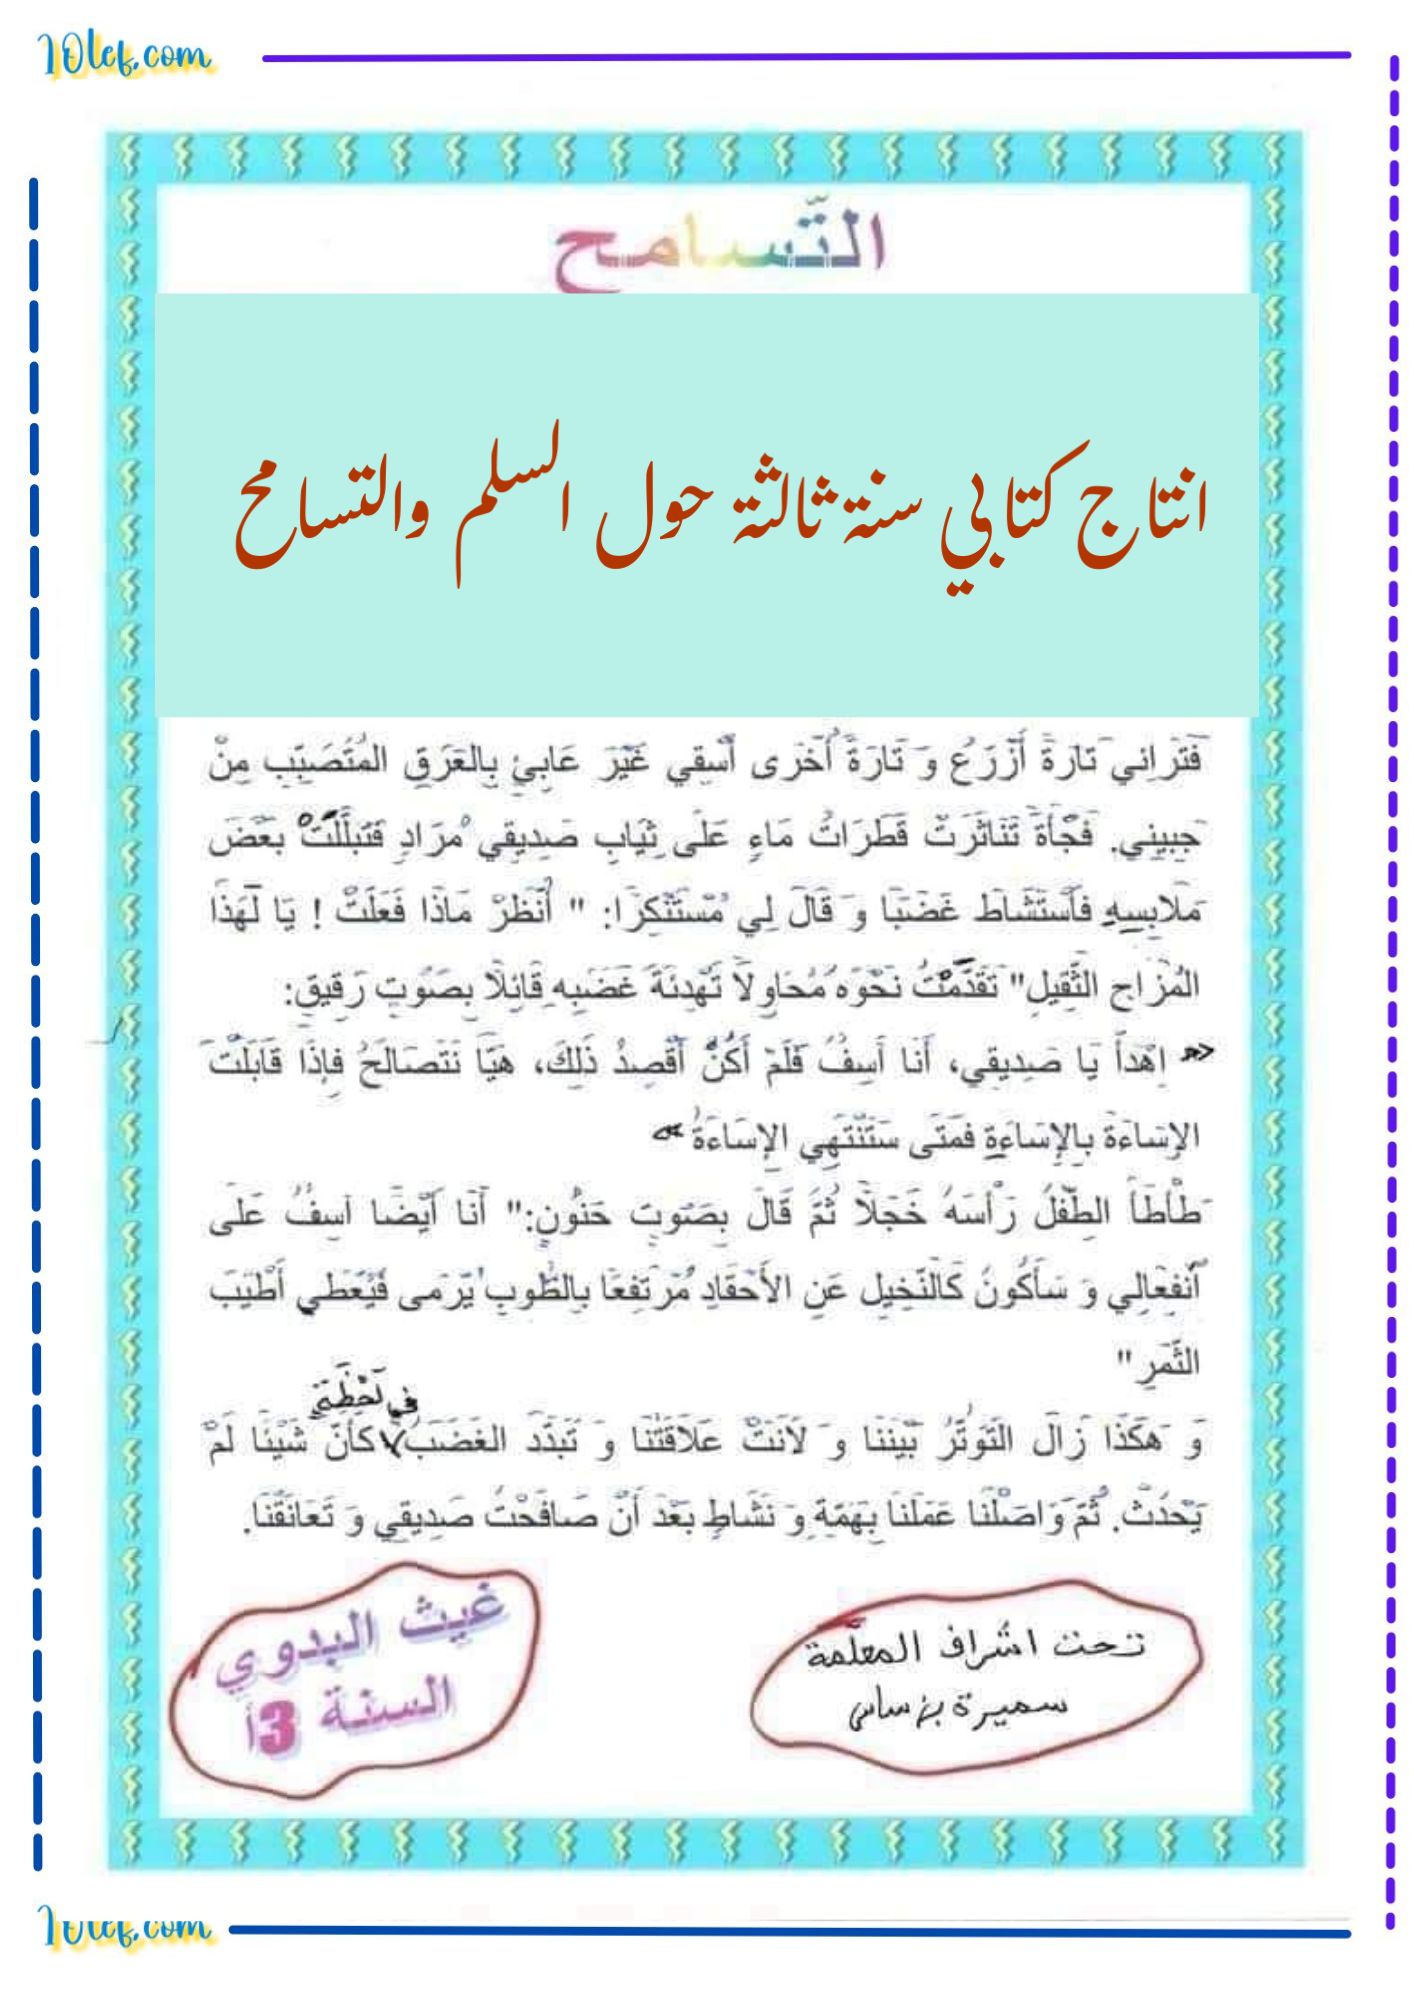 10lef.com
التّسامح
انتاج كتابي سنة ثالثة حول السلم والتسامح
فَتَرَانِي تَارَةً أَزْرَعُ وَ تَارَةً أُخْرَى أَسْقِي غَيْرَ عَابِئٍ بِالعَرَقِ المُتَصَبِّبِ مِنْ
جَبِينِي. فَجْأَةً تَنَاثَرَتْ قَطَرَاتُ مَاءٍ عَلَى ثِيَابِ صَدِيقِي مُرَادٍ فَتَبَلَّلَتْ بَعْضَ
مَلَابِسِهِ فَاسْتَشَاطَ غَضَبًا وَ قَالَ لِي مُسْتَنْكِرًا: " أُنْظُرْ مَاذَا فَعَلَتْ ! يَا لَهَذَا
المُزَاحِ الثَّقِيلِ" تَقَدَّمْتُ نَحْوَهُ مُحَاوِلاً تَهْدِئَةَ غَضَبِهِ قَائِلًا بِصَوْتٍ رَقِيقٍ:
« اِهْدَأْ يَا صَدِيقِي، أَنَا آسِفٌ فَلَمْ أَكُنْ أَقْصِدُ ذَلِكَ، هَيَّا نَتَصَالَحُ فَإِذَا قَابَلْتَ
الإِسَاءَةَ بِالإِسَاءَةِ فَمَتَى سَتَنْتَهِي الإِسَاءَةُ »
طَأْطَأَ الطِّفْلُ رَأْسَهُ خَجَلًا ثُمَّ قَالَ بِصَوْتٍ حَنُونٍ:" أَنَا أَيْضًا آسِفٌ عَلَى
اُنْفِعَالِي وَ سَأَكُونُ كَالنَّخِيلِ عَنِ الأَحْقَادِ مُرْتَفِعًا بِالطُّوبِ يُرْمَى فَيُعْطِي أَطْيَبَ
الثَّمَرِ"
فِي لَحْظَةٍ
وَ هَكَذَا زَالَ التَوَتُّرُ بَيْنَنَا وَ لَانَتْ عَلَاقَتُنَا وَ تَبَدَّدَ الغَضَبُ كَأَنَّ شَيْئًا لَمْ
يَحْدُثْ. ثُمَّ وَاصَلْنَا عَمَلَنَا بِهِمَّةٍ وَ نَشَاطٍ بَعْدَ أَنْ صَافَحْتُ صَدِيقِي وَ تَعَانَقْنَا.
تحت اشراف المعلّمة
سميرة بن ساسي
غيث البدوي
السنة 3أ
10lef.com